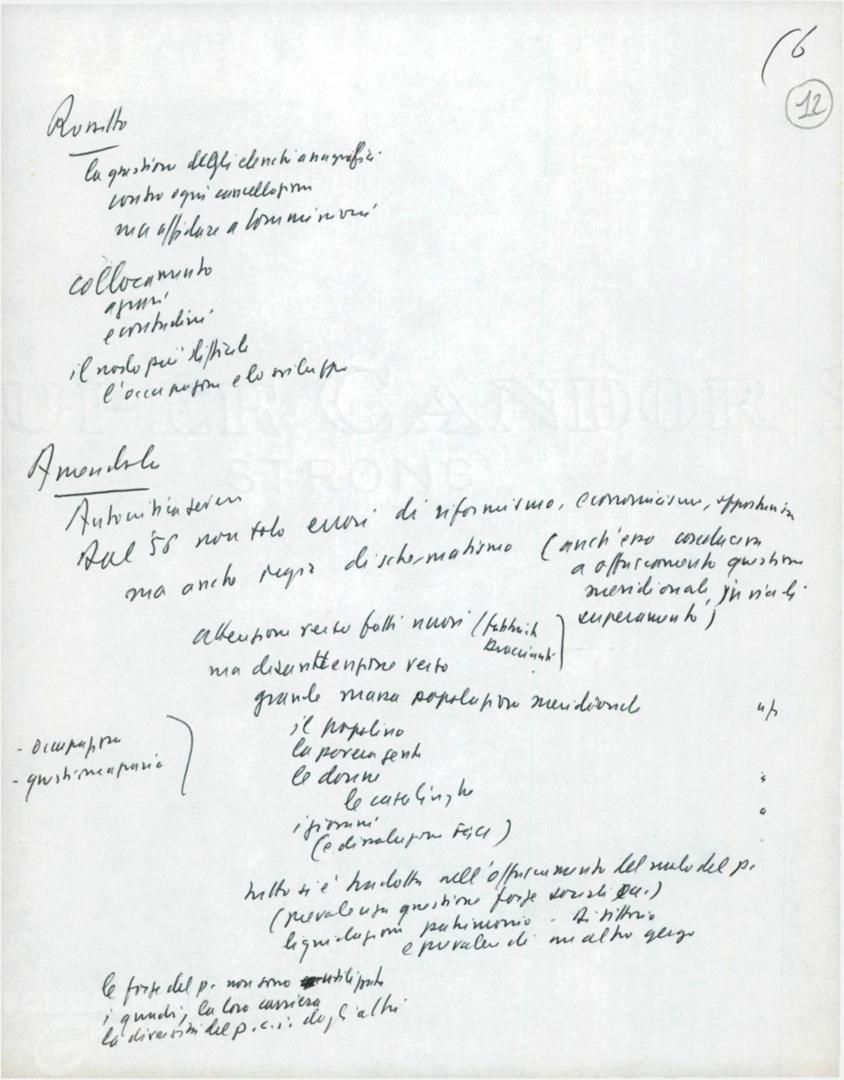 (6
12
Rossitto
la questione degli elenchi anagrafici
contro ogni cancellazione
ma affidare a commissioni
collocamento
agrari
e contadini
il nodo più difficile
l'occupazione e lo sviluppo
SUPER CANDOR S
STRONG
Amendola
Autocritica severa
Dal '56 non solo errori di riformismo, economicismo, opportunismo
ma anche di schematismo (anch'esso conduceva
a offuscamento questione
meridionale, in via di
superamento)
attenzione verso fatti nuovi (fabbrich
braccianti)
ma disattenzione verso
grande massa popolazione meridionale
il popolino
la povera gente
le donne
le casalinghe
i giovani
(e dissoluzione FGCI)
- occupazione
- questione agraria
tutto si è tradotto nell'offuscamento del ruolo del p.
(prevalenza questione forze sociali ecc.)
liquidazione patrimonio - Di Vittorio
e prevalere di un altro gergo
le forze del p. non sono utilizzate
i quadri, la loro carriera
la diversità del p.c.i. dagli altri